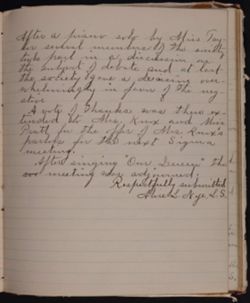 After a piano solo by Miss Tay-
lor several members of the
took part in a discussion on
the subject of debate and at last
the society gave a decision over-
whelmingly in favor of the neg-
ative.
A vote of thanks was then ex-
tended to Mrs. Knox and Miss
Pratt for the offer of Mrs. Knox's
parlors for the next Sigma
meeting.
After singing "Our Deucer" the
meeting was adjourned.
Respectfully submitted
L. Nye, S.S.